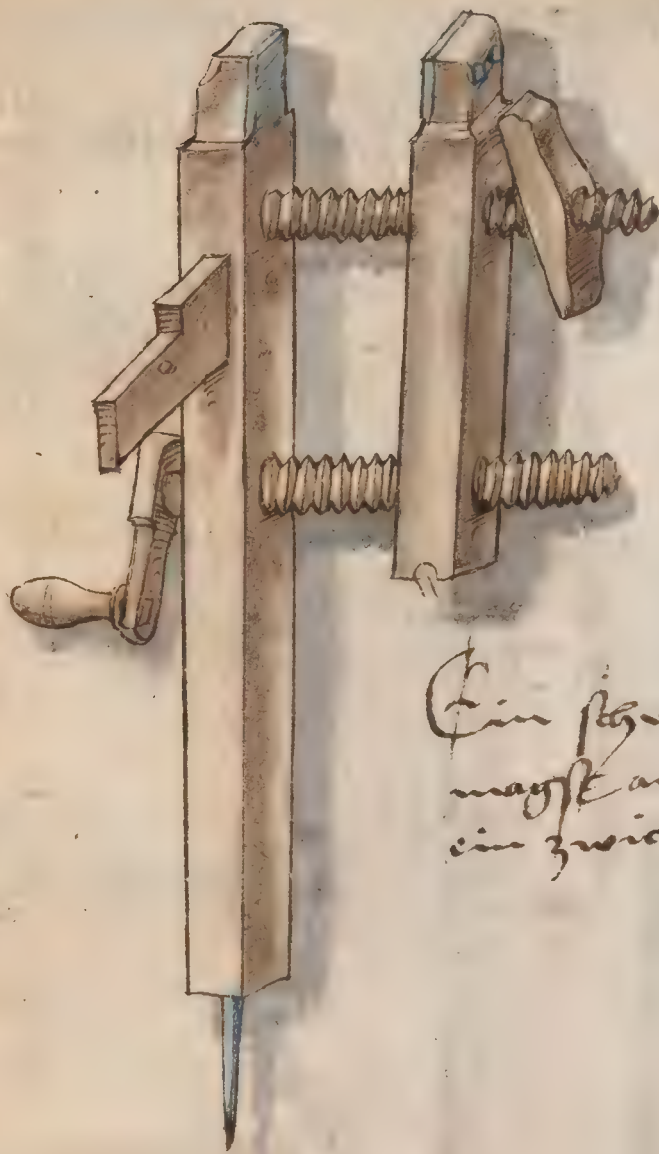 Ein sch
magst a
ein zwi